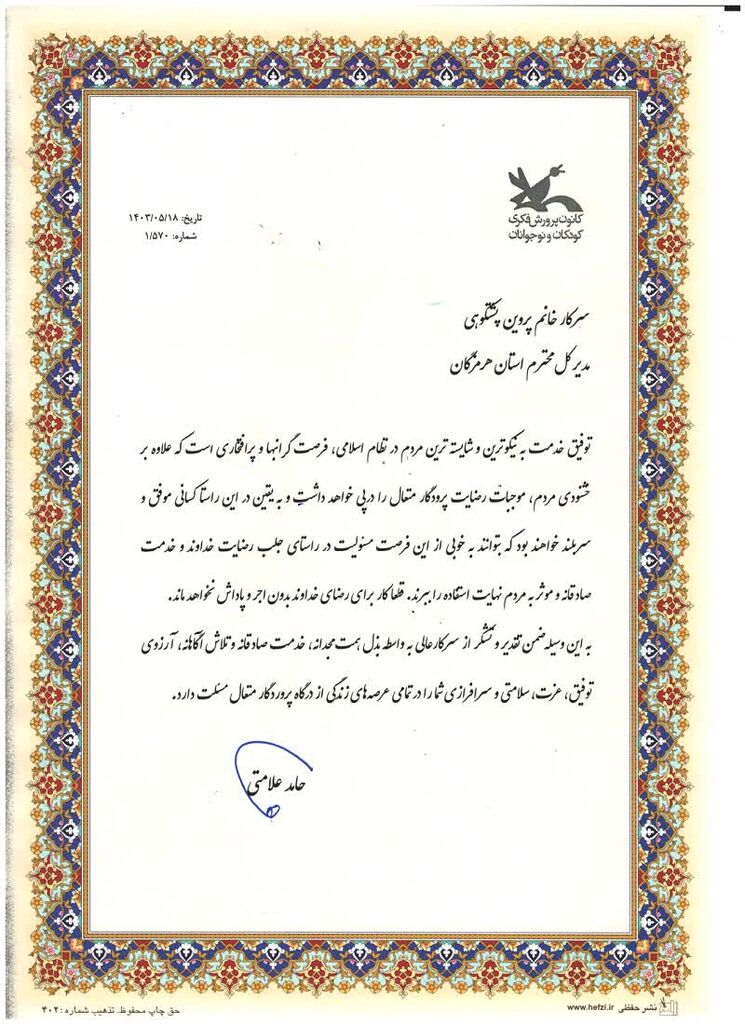 کانون پرورش فکری
کودکان و نوجوانان
تاریخ: ۱۴۰۳/۰۵/۱۸
شماره: ۱/۵۷۰
سرکار خانم پروین پشتکوهی
مدیر کل محترم استان هرمزگان
توفیق خدمت به نیکوترین و شایسته ترین مردم در نظام اسلامی، فرصت گرانبها و پرافتخاری است که علاوه بر
خشنودی مردم، موجبات رضایت پرودگار متعال را در پی خواهد داشت و به یقین در این راستا کسانی موفق و
سربلند خواهند بود که بتوانند به خوبی از این فرصت مسئولیت در راستای جلب رضایت خداوند و خدمت
صادقانه و موثر به مردم نهایت استفاده را ببرند. قطعا کار برای رضای خداوند بدون اجر و پاداش نخواهد ماند.
به این وسیله ضمن تقدیر و تشکر از سرکارعالی به واسطه بذل همت مجدانه، خدمت صادقانه و تلاش آگاهانه، آرزوی
توفیق، عزت، سلامتی و سرافرازی شما را در تمامی عرصه های زندگی از درگاه پروردگار متعال مسئلت دارد.
حامد علامتی
نشر حفظی www.hefzi.ir
حق چاپ محفوظ. تذهیب شماره: ۴۰۲